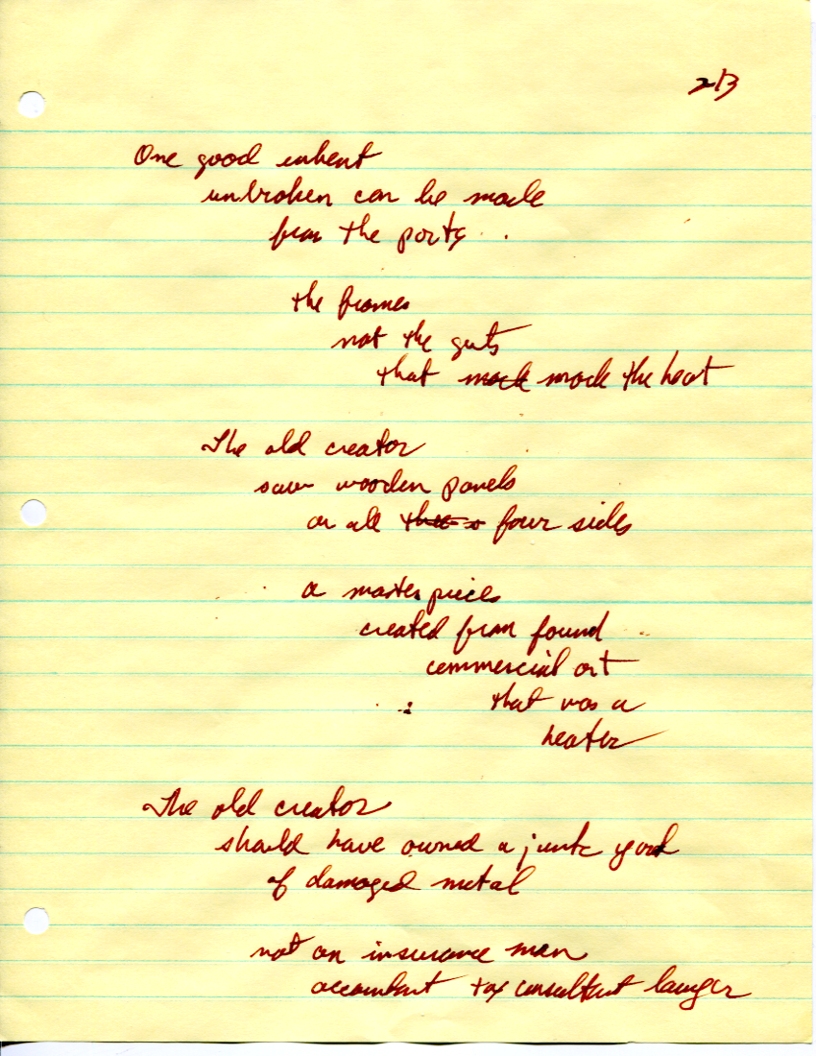 2/3
One good unbent
unbroken can be made
from the parts
the frames
not the guts
that made made the heat
The old creator
saw wooden panels
on all four sides
a masterpiece
created from found
commercial art
that was a
heater
The old creator
should have owned a junk yard
of damaged metal
not an insurance man
accountant tax consultant lawyer